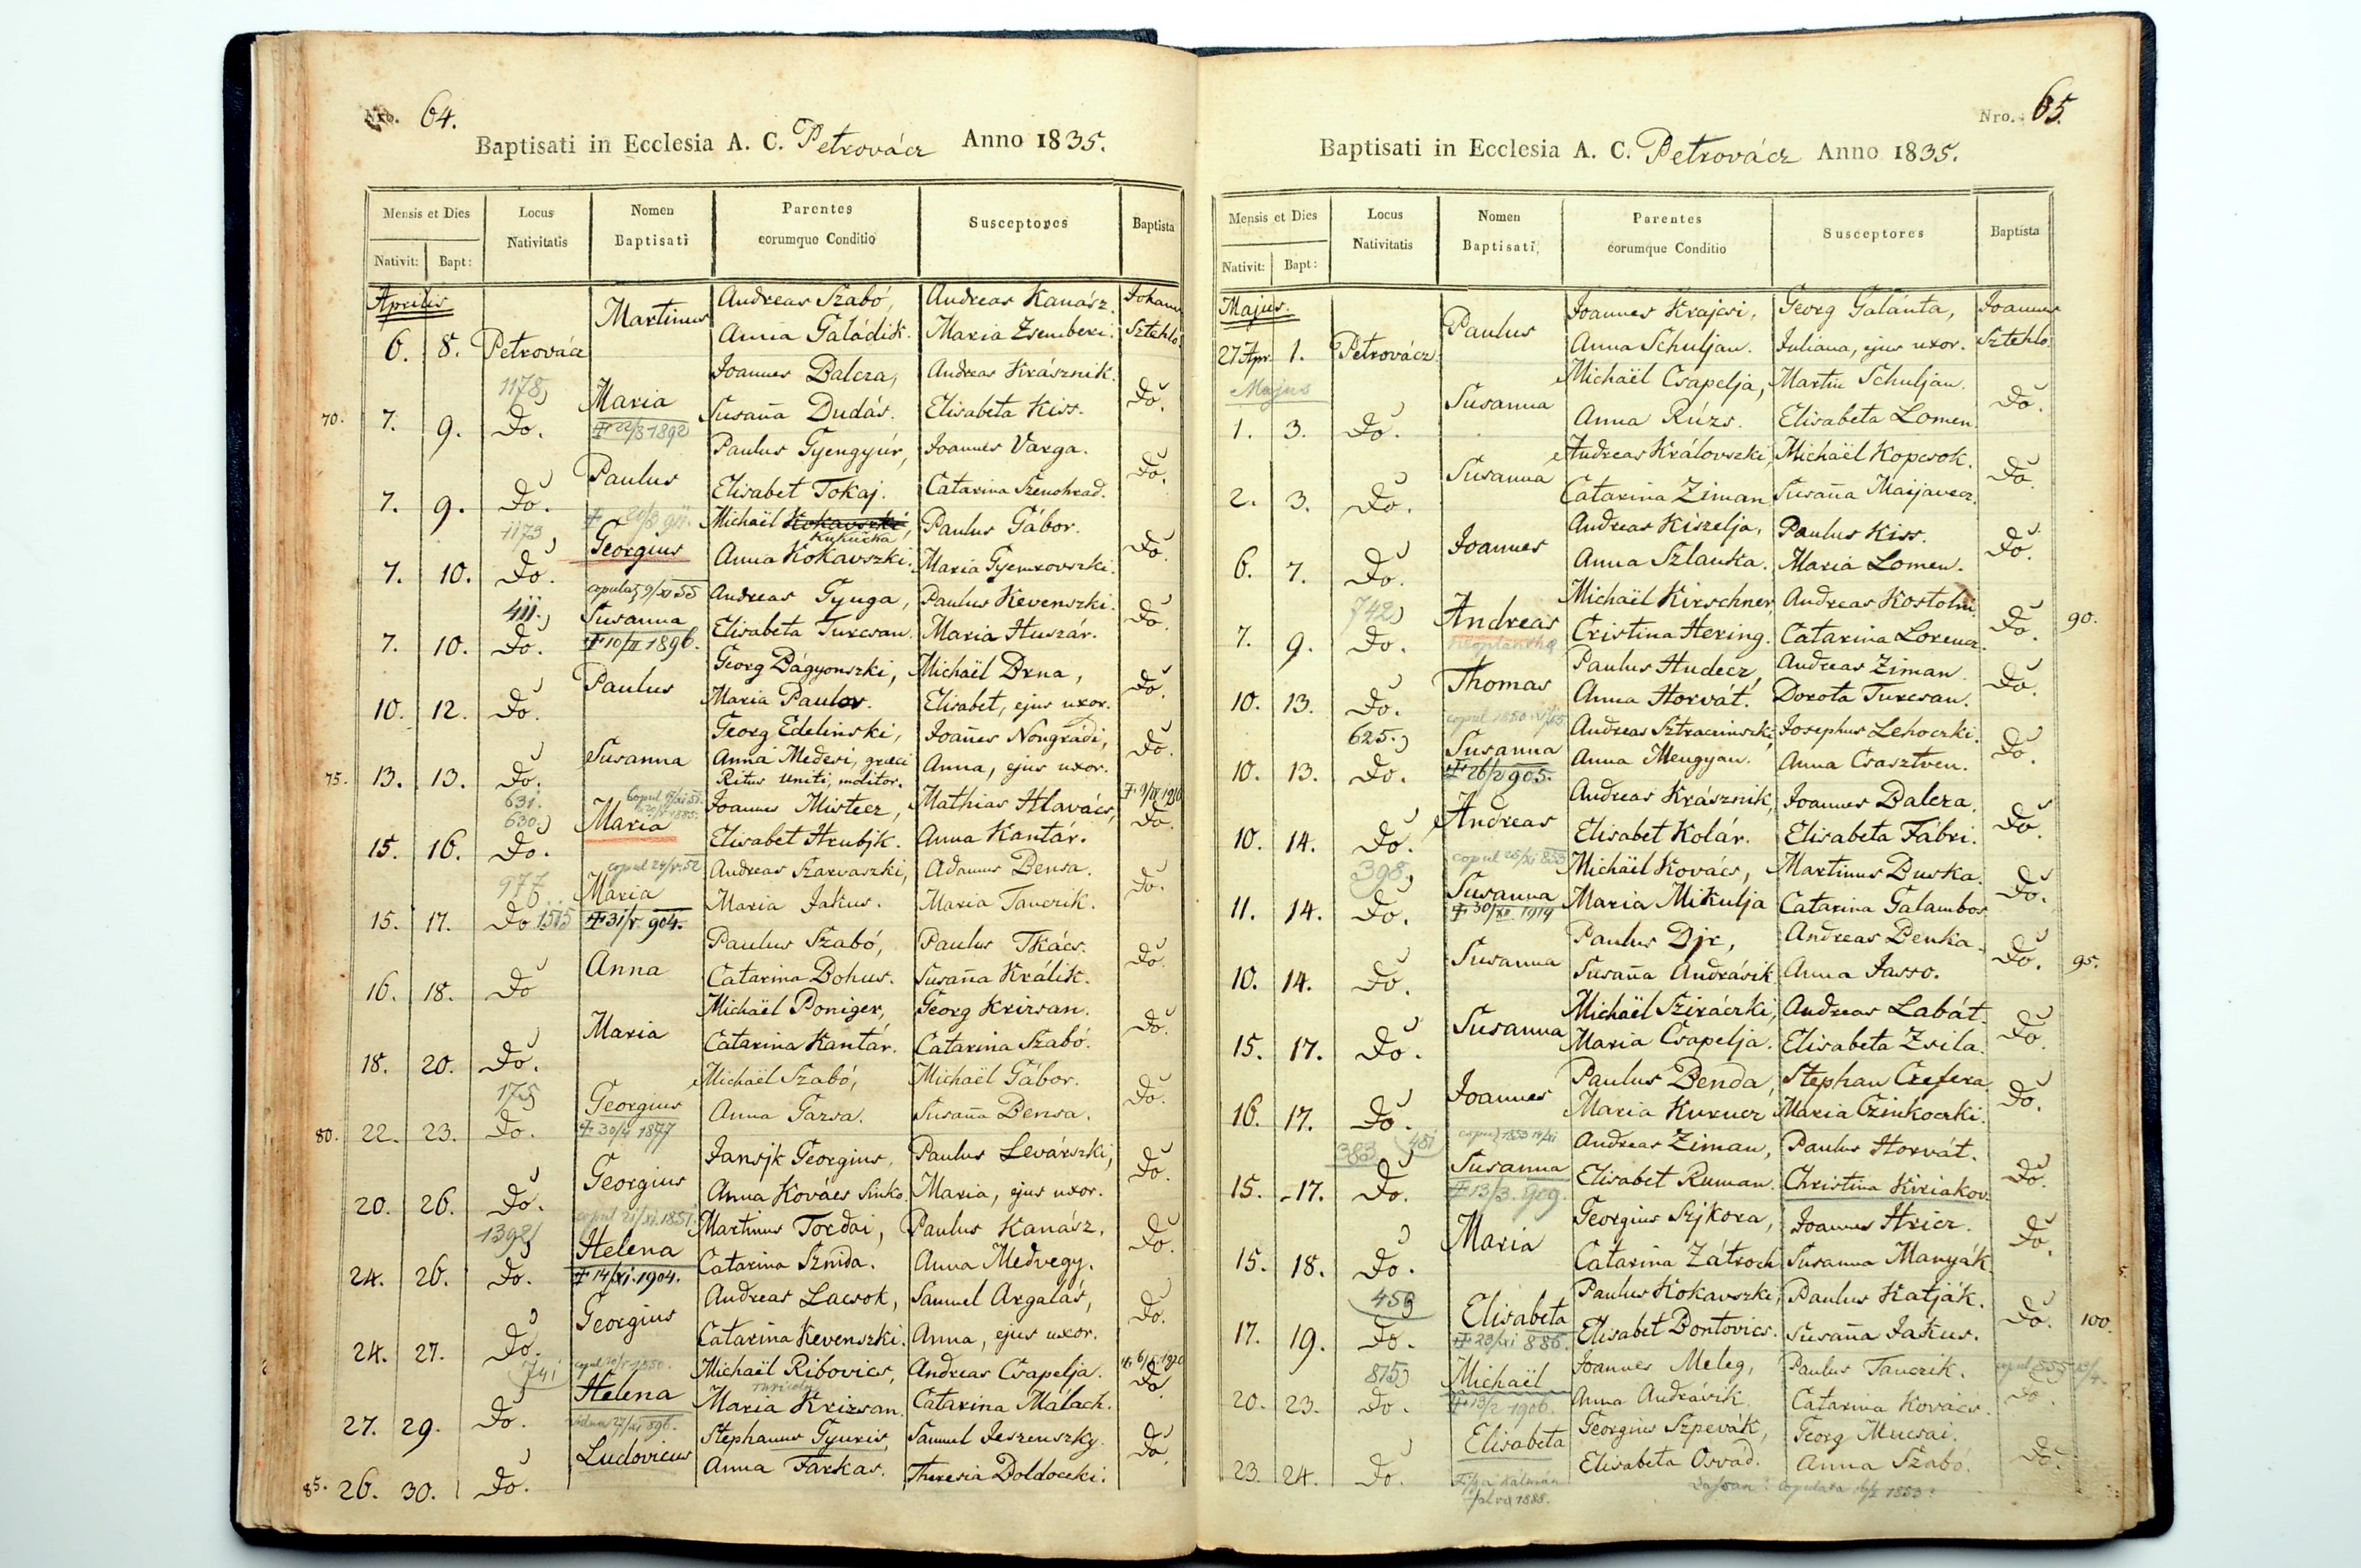 Nro. 64.
Baptisati in Ecclesia A. C. Petrovácz Anno 1835.
Mensis et Dies Locus Nativitatis Nomen Baptisati Parentes eorumque Conditio Susceptores Baptista
Nativit: Bapt:
Aprilis Martinus Andreas Szabó, Andreas Kanász. Johann
6. 8. Petrovácz Anna Galádik. Maria Zsemberi. Sztehlo.
1178 Maria Joannes Balcza, Andreas Krásznik.
70. 7. 9. Do. Susaña Dudás. Elisabeta Kiss. Do.
‡ 22/3 1892
Paulus Paulus Gyengyúr, Joannes Varga.
7. 9. Do. Elisabet Tokaj. Catarina Szenohrad. Do.
1173 Georgius Michaël Kokavszki Kukucka, Paulus Gábor.
7. 10. Do. Anna Kokavszki. Maria Gyemrovszki. Do.
411. Susanna Andreas Gyuga, Paulus Kevenszki.
7. 10. Do. ‡ 10/II 1896. Elisabeta Turcsan. Maria Huszár. Do.
Paulus Georg Bágyonszki, Michaël Brna,
10. 12. Do. Maria Paulov. Elisabet, ejus uxor. Do.
Susanna Georg Edelinski, Joañes Nongrádi,
75. 13. 13. Do. Anna Medesi, græci Anna, ejus uxor. Do.
Ritus Uniti, molitor.
631.
630. Maria Joannes Mistecz, Mathias Hlavács,
15. 16. Do. Elisabet Hrubjk. Anna Kantár. Do.
977 Maria Andreas Szarvaszki, Adamus Bensa.
15. 17. Do 1515 ‡ 31/V. 904. Maria Jakus. Maria Tanczik. Do.
Anna Paulus Szabó, Paulus Tkács.
16. 18. Do Catarina Bohus. Susaña Králik. Do.
Maria Michaël Poniger, Georg Krizsan.
18. 20. Do. Catarina Kantár. Catarina Szabó. Do.
175 Georgius Michaël Szabó, Michaël Gábor.
80. 22. 23. Do. ‡ 30/4 1877 Anna Gazsa. Susaña Bensa. Do.
Georgius Jansjk Georgius, Paulus Levárszki,
20. 26. Do. Anna Kovács Sinko. Maria, ejus uxor. Do.
1392 Helena Martinus Tordai, Paulus Kanász.
24. 26. Do. ‡ 14/XI. 1904. Catarina Sznida. Anna Medvegy. Do.
Georgius Andreas Lacsok, Samuel Argalás,
24. 27. Do. Catarina Kevenszki. Anna, ejus uxor. Do.
741 Helena Michaël Ribovics, Andreas Csapelja.
27. 29. Do. Maria Krizsan. Catarina Málach. Do.
Ludovicus Stephanus Gyuris, Samuel Jeszenszky.
85. 26. 30. Do. Anna Farkas. Theresia Doldocski. Do.
Nro. 65.
Baptisati in Ecclesia A. C. Petrovácz Anno 1835.
Mensis et Dies Locus Nativitatis Nomen Baptisati Parentes eorumque Conditio Susceptores Baptista
Nativit: Bapt:
Majus. Paulus Joannes Krajcsi, Georg Galánta, Joannes
27 Apr. 1. Petrovácz Anna Schuljan. Juliana, ejus uxor. Sztehlo.
Majus Susanna Michaël Csapelja, Martin Schuljan.
1. 3. Do. Anna Rúzs. Elisabeta Lomen. Do.
Susanna Andreas Královszki, Michaël Kopcsok.
2. 3. Do. Catarina Ziman Susaña Majjavecz. Do.
Joannes Andreas Kiszelja, Paulus Kiss.
6. 7. Do. Anna Szlauka. Maria Lomen. Do.
742 Andreas Michaël Kirschner, Andreas Kostolni
7. 9. Do. Cristina Hering. Catarina Lorencz. Do. 90.
Thomas Paulus Hudecz, Andreas Ziman.
10. 13. Do. Anna Horvát. Dorota Turcsan. Do.
625. Susanna Andreas Sztracsinszki, Josephus Lehoczki.
10. 13. Do. ‡ 26/2 905. Anna Mengyan. Anna Csasztven. Do.
Andreas Andreas Krásznik, Joannes Balcza.
10. 14. Do. Elisabet Kolár. Elisabeta Fábri. Do.
398. Susanna Michaël Kovács, Martinus Duska.
11. 14. Do. ‡ 30/XII. 1919 Maria Mikulja Catarina Galambos Do.
Susanna Paulus Djr, Andreas Benka.
10. 14. Do. Susaña Andrásik. Anna Jasso. Do. 95.
Susanna Michaël Sziráczki, Andreas Labát.
15. 17. Do. Maria Csapelja. Elisabeta Zsila. Do.
Joannes Paulus Benda, Stephan Czefera
16. 17. Do. Maria Kurucz Maria Czinkoczki. Do.
383 481 Susanna Andreas Ziman, Paulus Horvát.
15. 17. Do. ‡ 13/3. 909. Elisabet Ruman. Christina Kiriakov. Do.
Maria Georgius Szjkora, Joannes Hricz.
15. 18. Do. Catarina Zátroch Susanna Manyák Do.
459 Elisabeta Paulus Kokavszki, Paulus Katják.
17. 19. Do. ‡ 23/XI 886. Elisabet Bontovics. Susaña Jakus. Do. 100.
815 Michaël Joannes Meleg, Paulus Tanczik.
20. 23. Do. ‡ 13/2 1906. Anna Andrásik. Catarina Kovács. Do.
Elisabeta Georgius Szpevák, Georg Mucsai.
23. 24. Do. Elisabeta Osvad. Anna Szabó. Do.